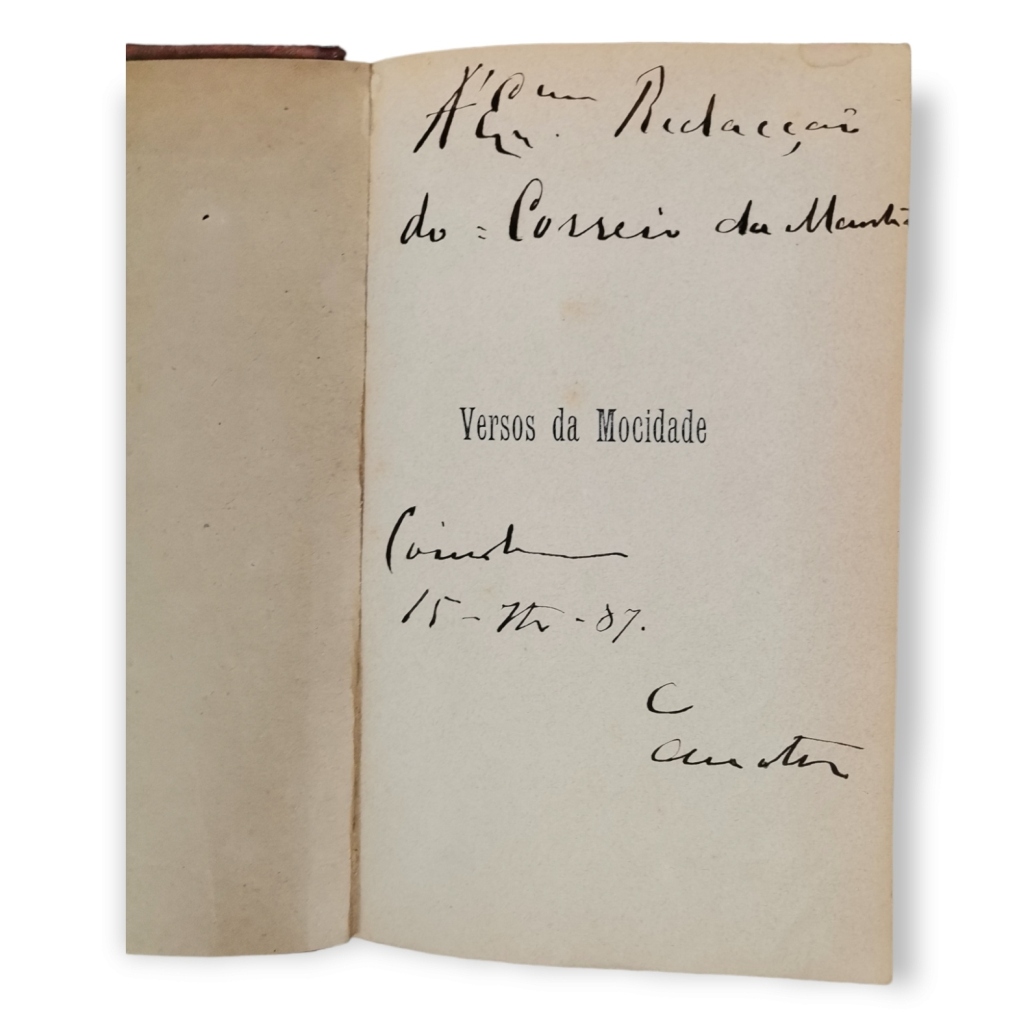 A' Exma. Redacção
do = Correio da Manhã
Versos da Mocidade
Coimbra
15 - 7bro - 87.
O
auctor